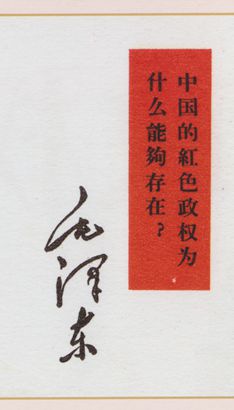 中国的紅色政权为
什么能夠存在?
毛泽东